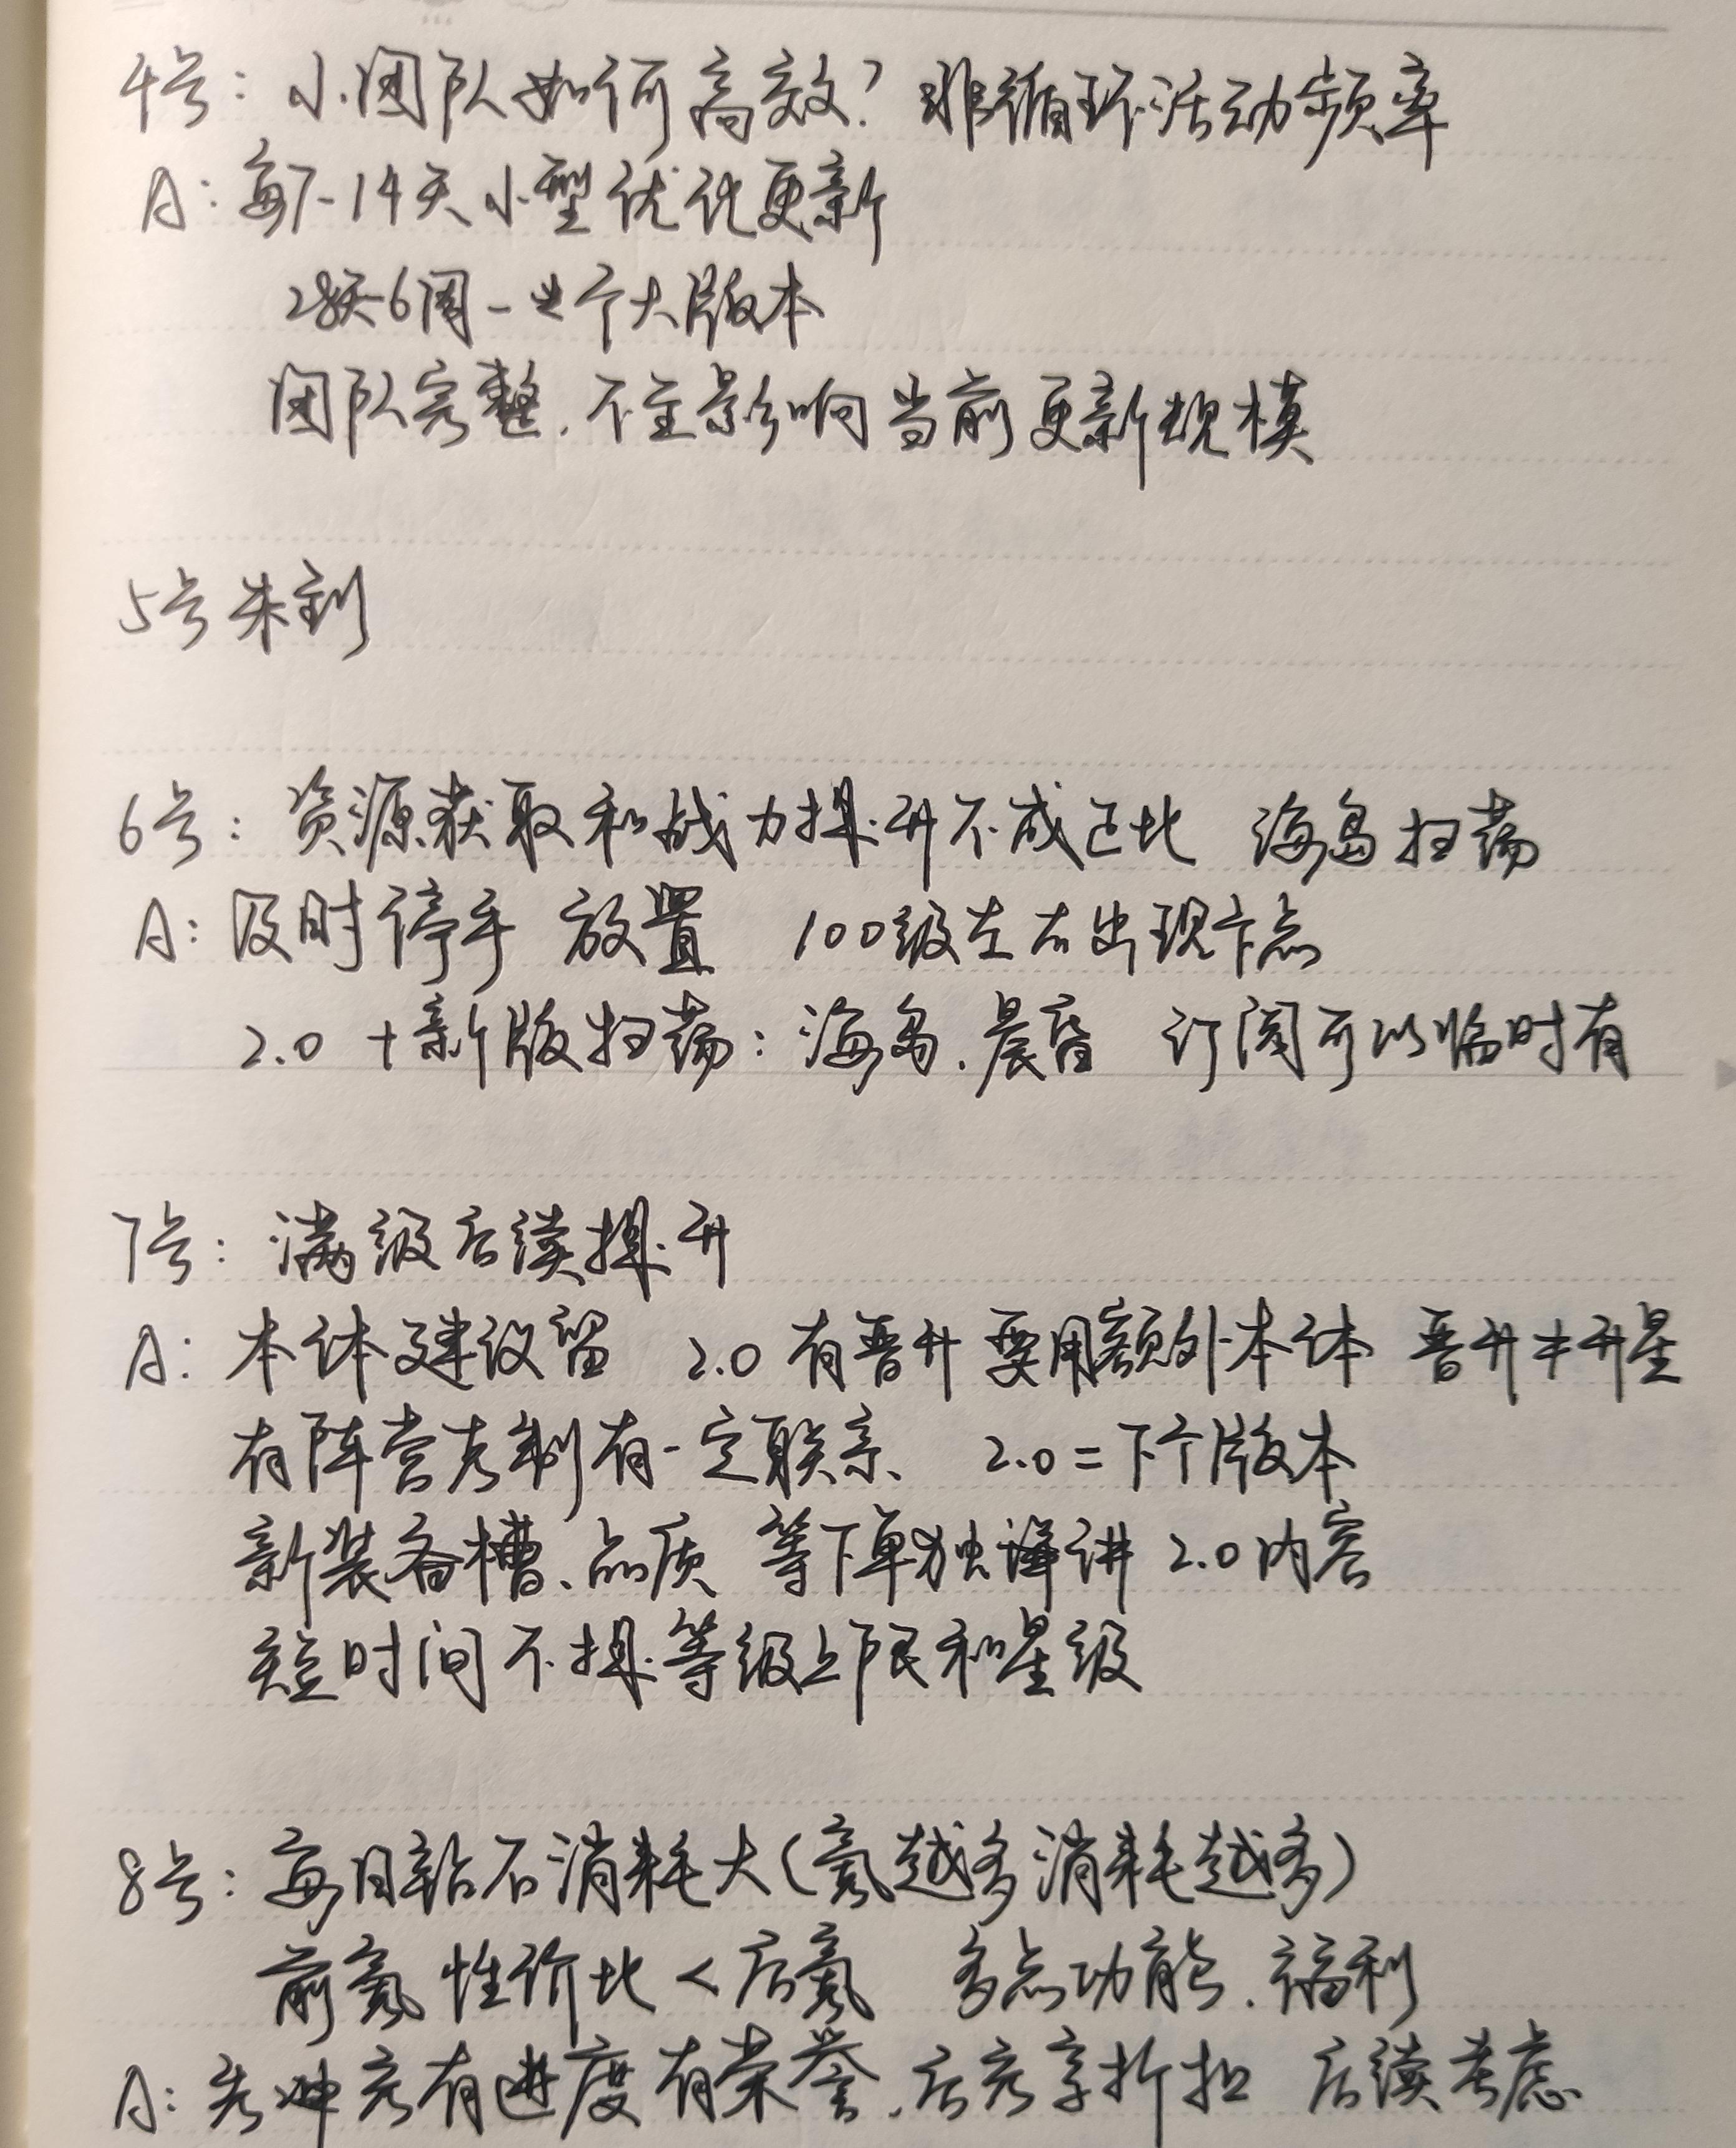 4号：小团队如何高效？ 非循环活动频率
A：每7-14天小型优化更新
28天-6周一个大版本
团队完整，不至影响当前更新规模
5号未到
6号：资源获取和战力提升不成正比 海岛扫荡
A：及时停手 放置 100级左右出现卡点
2.0 +新版扫荡：海岛、晨昏 订阅可以临时有
7号：满级后续提升
A：本体建议留 2.0有晋升要用额外本体 晋升≠升星
有阵营克制有一定联系 2.0=下个版本
新装备槽、品质 等下单独讲 2.0内容
短时间不提等级上限和星级
8号：每日钻石消耗大（氪越多消耗越多）
前氪性价比<后氪 多点功能、福利
A：先充有进度有荣誉，后充享折扣 后续考虑